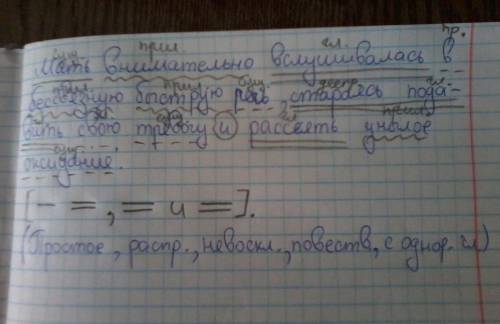 сущ. прил. гл. пр.
Мать внимательно вслушивалась в
прил. прил. сущ. дееп. гл.
бессвязную быструю речь, стараясь пода-
сущ. гл. прил.
вить свою тревогу и рассеять унылое
сущ.
ожидание.
[- =, = и =].
(Простое, распр., невоскл., повеств, с однор. гл)